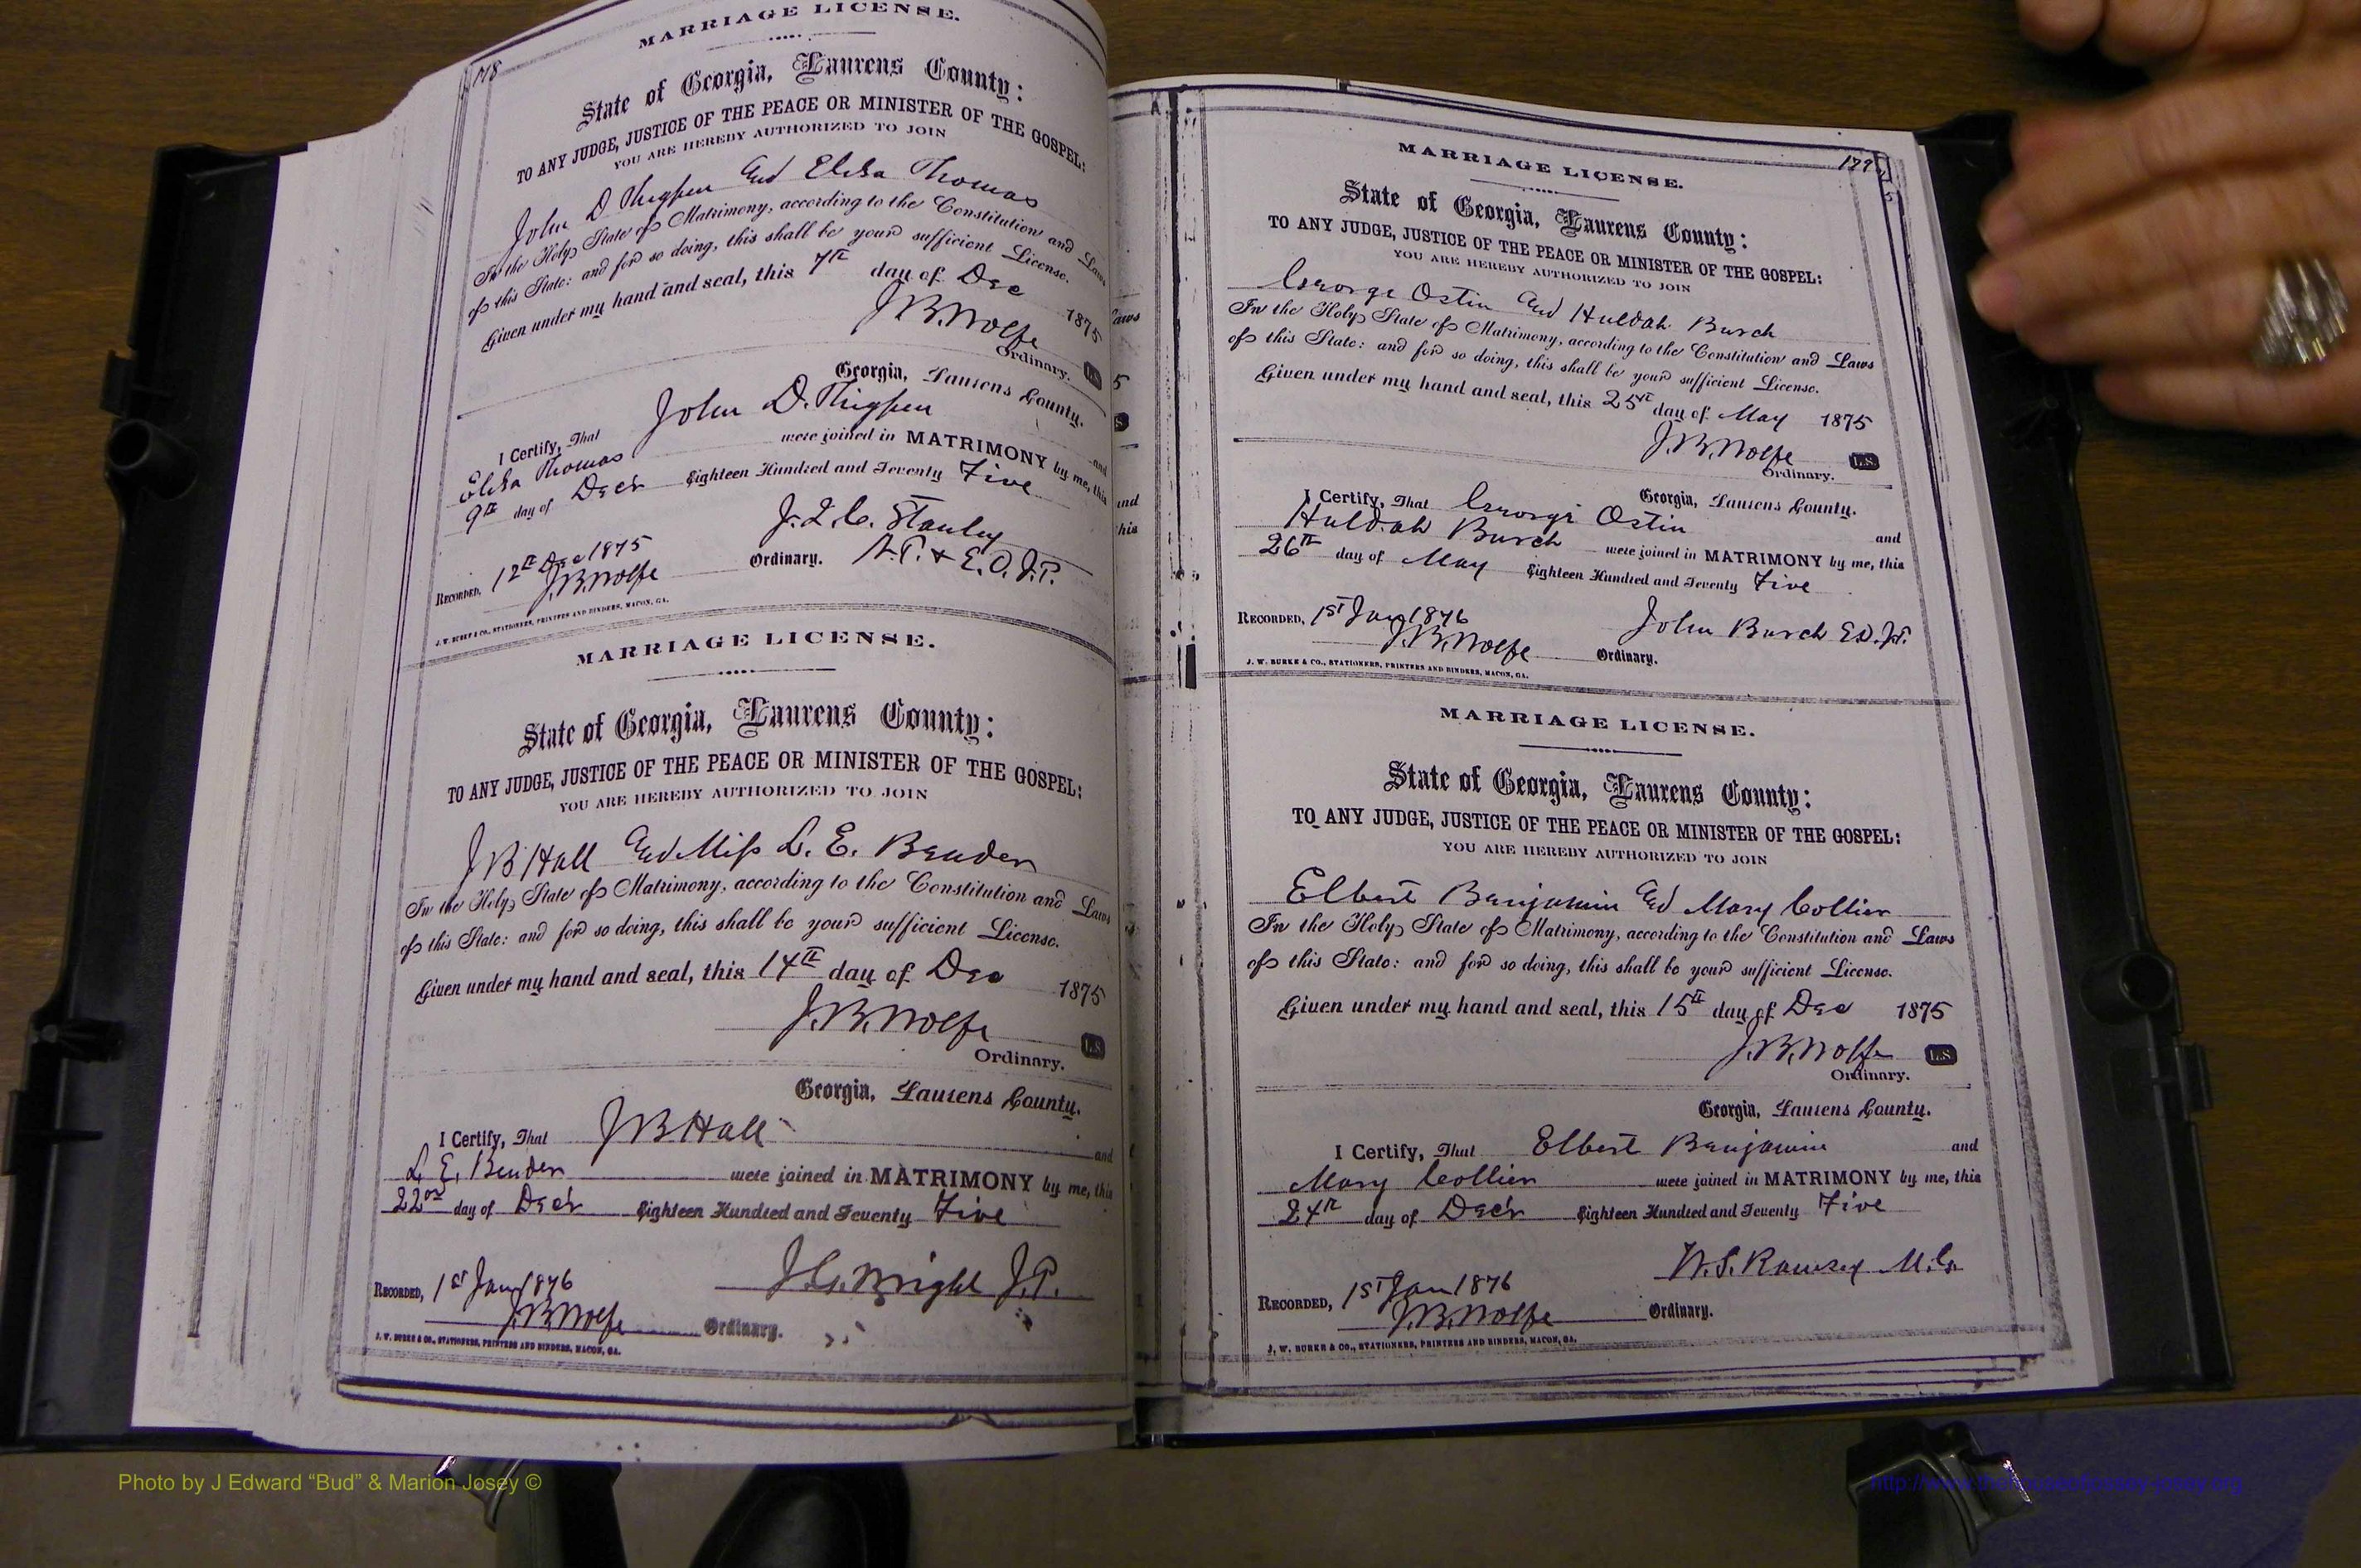 178
MARRIAGE LICENSE.
State of Georgia, Laurens County:
TO ANY JUDGE, JUSTICE OF THE PEACE OR MINISTER OF THE GOSPEL:
YOU ARE HEREBY AUTHORIZED TO JOIN
John D Thigpen and Eliza Thomas
In the Holy State of Matrimony, according to the Constitution and Laws
of this State: and for so doing, this shall be your sufficient License.
Given under my hand and seal, this 7th day of Dec 1875
J.B. Wolfe
Ordinary. L.S.
Georgia, Laurens County.
I Certify, That John D. Thigpen and
Eliza Thomas were joined in MATRIMONY by me, this
9th day of Decr Eighteen Hundred and Seventy Five
J. L. C. Stanley
Recorded, 12th Dec 1875 Ordinary. N.P. & E.O.J.P.
J.B. Wolfe
J. W. BURKE & CO., STATIONERS, PRINTERS AND BINDERS, MACON, GA.
MARRIAGE LICENSE.
State of Georgia, Laurens County:
TO ANY JUDGE, JUSTICE OF THE PEACE OR MINISTER OF THE GOSPEL:
YOU ARE HEREBY AUTHORIZED TO JOIN
J B Hall and Miss L. E. Beuden
In the Holy State of Matrimony, according to the Constitution and Laws
of this State: and for so doing, this shall be your sufficient License.
Given under my hand and seal, this 14th day of Dec 1875
J.B. Wolfe
L.S.
Ordinary.
Georgia, Laurens County.
I Certify, That J B Hall and
L. E. Beuden were joined in MATRIMONY by me, this
22nd day of Decr Eighteen Hundred and Seventy Five
Recorded, 1st Jany 1876 Wright J.P.
J.B. Wolfe Ordinary.
J. W. BURKE & CO., STATIONERS, PRINTERS AND BINDERS, MACON, GA.
179
MARRIAGE LICENSE.
State of Georgia, Laurens County:
TO ANY JUDGE, JUSTICE OF THE PEACE OR MINISTER OF THE GOSPEL:
YOU ARE HEREBY AUTHORIZED TO JOIN
George Ostin and Huldah Burch
In the Holy State of Matrimony, according to the Constitution and Laws
of this State: and for so doing, this shall be your sufficient License.
Given under my hand and seal, this 25th day of May 1875
J.B. Wolfe L.S.
Ordinary.
Georgia, Laurens County.
I Certify, That George Ostin and
Huldah Burch were joined in MATRIMONY by me, this
26th day of May Eighteen Hundred and Seventy Five
Recorded, 1st Jany 1876 John Burch E.O.J.P.
J.B. Wolfe Ordinary.
J. W. BURKE & CO., STATIONERS, PRINTERS AND BINDERS, MACON, GA.
MARRIAGE LICENSE.
State of Georgia, Laurens County:
TO ANY JUDGE, JUSTICE OF THE PEACE OR MINISTER OF THE GOSPEL:
YOU ARE HEREBY AUTHORIZED TO JOIN
Elbert Benjamin and Mary Collier
In the Holy State of Matrimony, according to the Constitution and Laws
of this State: and for so doing, this shall be your sufficient License.
Given under my hand and seal, this 15th day of Dec 1875
J.B. Wolfe L.S.
Ordinary.
Georgia, Laurens County.
I Certify, That Elbert Benjamin and
Mary Collier were joined in MATRIMONY by me, this
24th day of Decr Eighteen Hundred and Seventy Five
W.S. Ramsey M.G.
Recorded, 1st Jan 1876
J.B. Wolfe Ordinary.
J. W. BURKE & CO., STATIONERS, PRINTERS AND BINDERS, MACON, GA.
Photo by J Edward “Bud” & Marion Josey ©
http://www.thehouseofjossey-josey.org